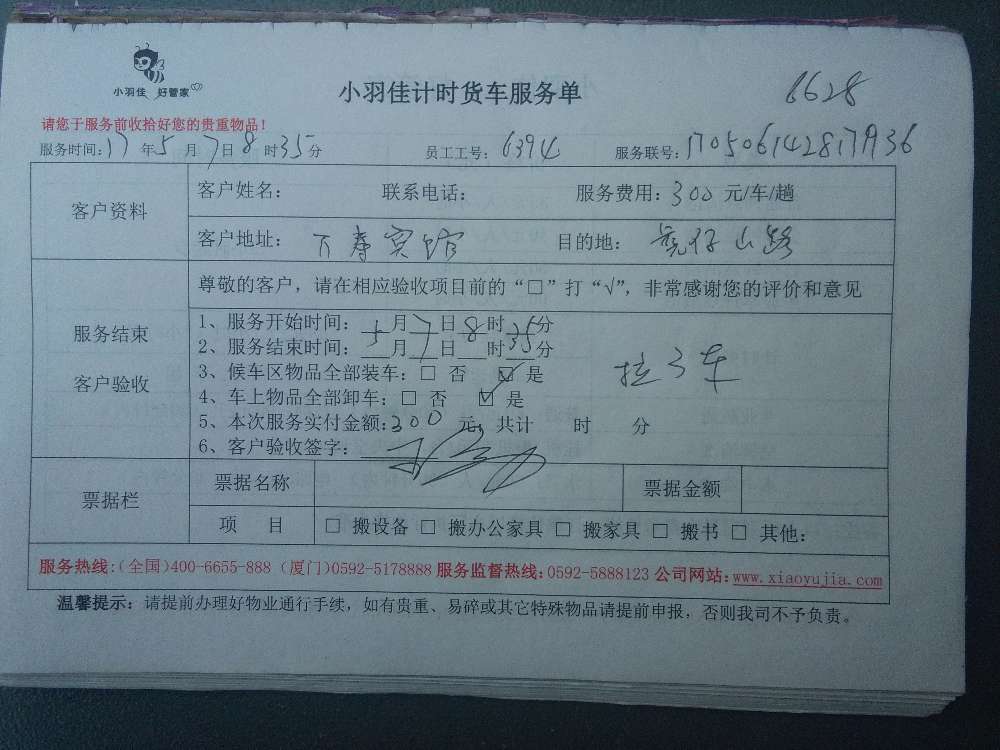 小羽佳 好管家
小羽佳计时货车服务单
6628
请您于服务前收拾好您的贵重物品！
服务时间：17 年 5 月 7 日 8 时 35 分 员工工号：6394 服务联号：
客户资料
客户姓名： 联系电话： 服务费用：300 元/车/趟
客户地址：万寿宾馆 目的地：仔山路
尊敬的客户，请在相应验收项目前的“□”打“√”，非常感谢您的评价和意见
服务结束
客户验收
1、服务开始时间：5月7日8时35分
2、服务结束时间：__月7日__时35分
3、候车区物品全部装车：□ 否 ☑ 是
拉3车
4、车上物品全部卸车：□ 否 ☑ 是
5、本次服务实付金额：300 元，共计 时 分
6、客户验收签字：
票据栏
票据名称 票据金额
项 目 □ 搬设备 □ 搬办公家具 □ 搬家具 □ 搬书 □ 其他：
服务热线：（全国）400-6655-888（厦门）0592-5178888 服务监督热线：0592-5888123 公司网站：www.xiaoyujia.com
温馨提示：请提前办理好物业通行手续，如有贵重、易碎或其它特殊物品请提前申报，否则我司不予负责。